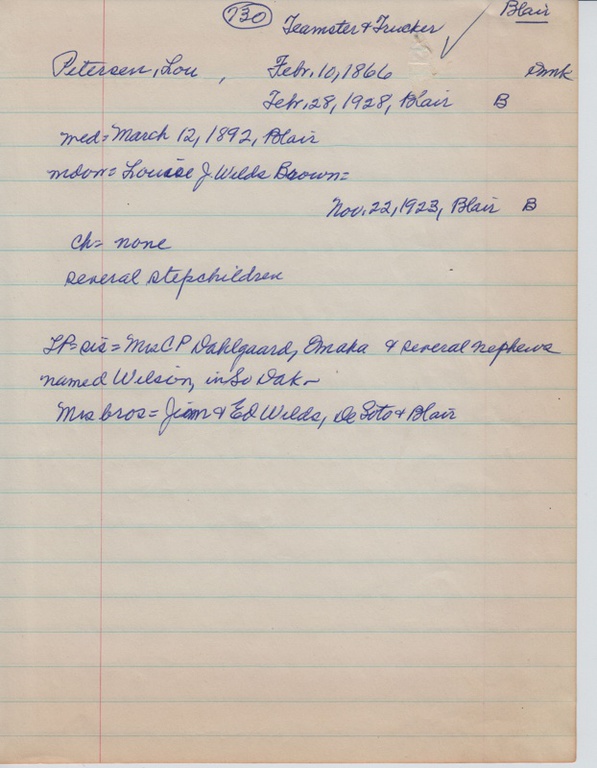 730 Teamster & Trucker Blair
Petersen, Lou , Febr. 10, 1866 Dmk
Febr. 28, 1928, Blair B
med = March 12, 1892, Blair
mdon = Louise J. Wilds Brown =
Nov. 22, 1923, Blair B
Ch = none
several stepchildren
LP = sis = Mrs C P Dahlgaard, Omaha & several nephews
named Wilson, in So Dak ~
Mrs bros = Jim & Ed Wilds, De Soto & Blair